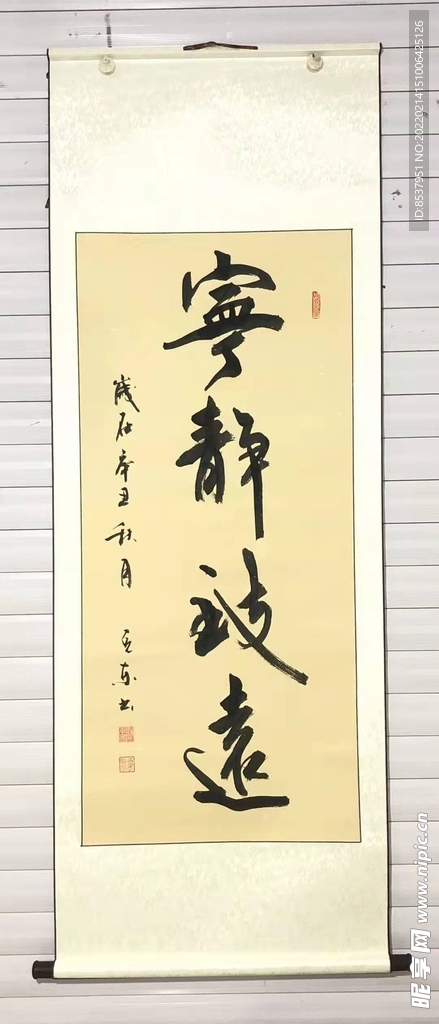 寧静致遠
歲在辛丑秋月
东书
ID:8537951 NO:20220214151006425126
昵享网 www.nipic.cn